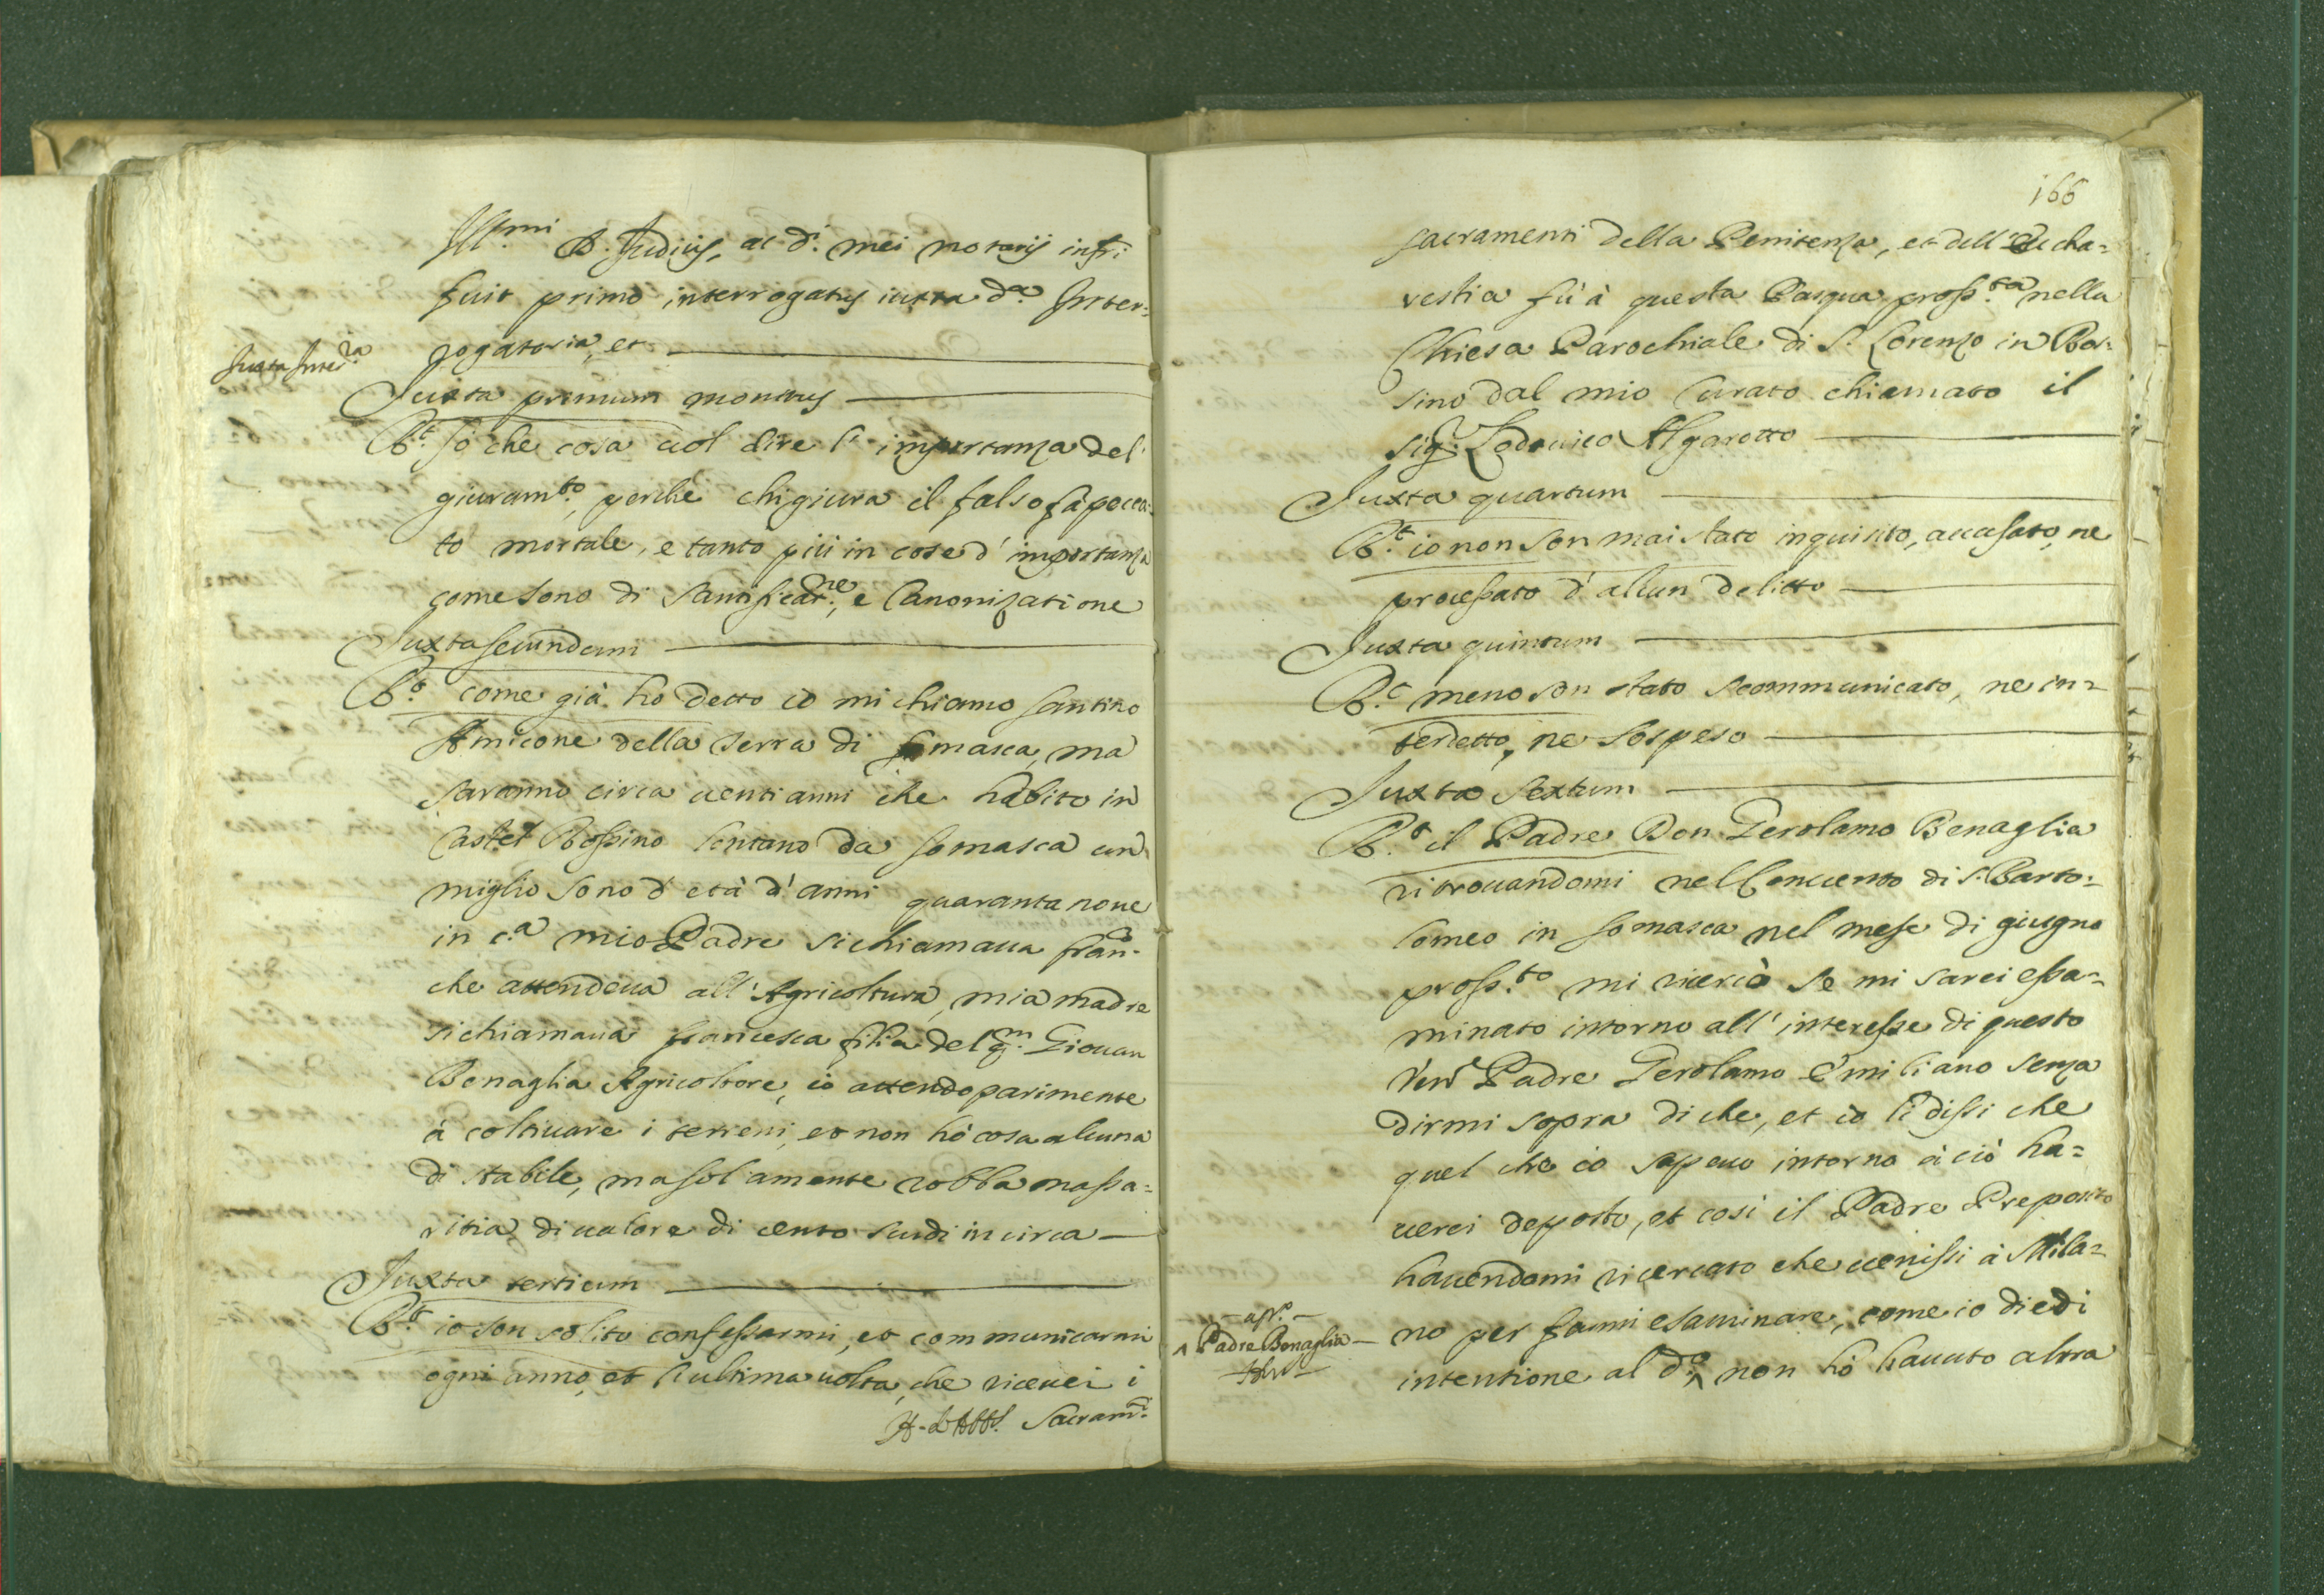 Ill.mi D. Judicis, ac d.i mei notarij infr.i
fuit primo interrogatus iuxta d.a Inter-
rogatoria, et
Juxta Inter.ia
Juxta primum monitus
R.t sò che cosa uol dire l'importanza del
giuram.to, perche chi giura il falso fà pecca-
to mortale, e tanto più in cose d'importanza
come sono di Santificat.ne, e Canonizatione
Juxta secundum
R.t come già ho detto io mi chiamo Santino
Amicone della Terra di Somasca, ma
saranno circa uenti anni che habito in
Castel Rossino lontano da Somasca un
miglio sono d'età d'anni quaranta noue
in c.a mio Padre si chiamaua Fran.co
che attendeua all'Agricoltura, mia madre
si chiamaua Francesca filia del q.m Giouan
Benaglia Agricoltore, io attendo parimente
à coltiuare i terreni, et non hò cosa alcuna
di stabile, ma solamente robba massa=
ritia di ualore di cento scudi in circa
Juxta tertium
R.t io son solito confessarmi, et communicarmi
ogni anno, et l'ultima uolta, che riceuei i
Sacram.ti
166
sacramenti della Penitenza, et dell'Eucha=
restia fù à questa Pasqua pross.ta nella
Chiesa Parochiale di S. Lorenzo in Ros-
sino dal mio Curato chiamato il
Sig.r Lodouico Algarotto
Juxta quartum
R.t io non son mai stato inquisito, accusato, ne
processato d'alcun delitto
Juxta quintum
R.t meno son stato scommunicato, ne in=
terdetto, ne sospeso
Juxta sextum
R.t il Padre Don Gerolamo Benaglia
ritrouandomi nel Conuento di S. Barto-
lomeo in Somasca nel mese di giugno
pross.to mi ricercò se mi sarei essa=
minato intorno all'interesse di questo
Ven.e Padre Gerolamo Emiliano senza
dirmi sopra di che, et io li dissi che
quel che io sapeuo intorno à ciò ha=
uerei deposto, et cosi il Padre Preposito
hauendomi ricercato che uenissi à Mila=
no per farmi esaminare, come io diedi
Padre Benaglia
intentione al d.o ^ non hò hauuto altra